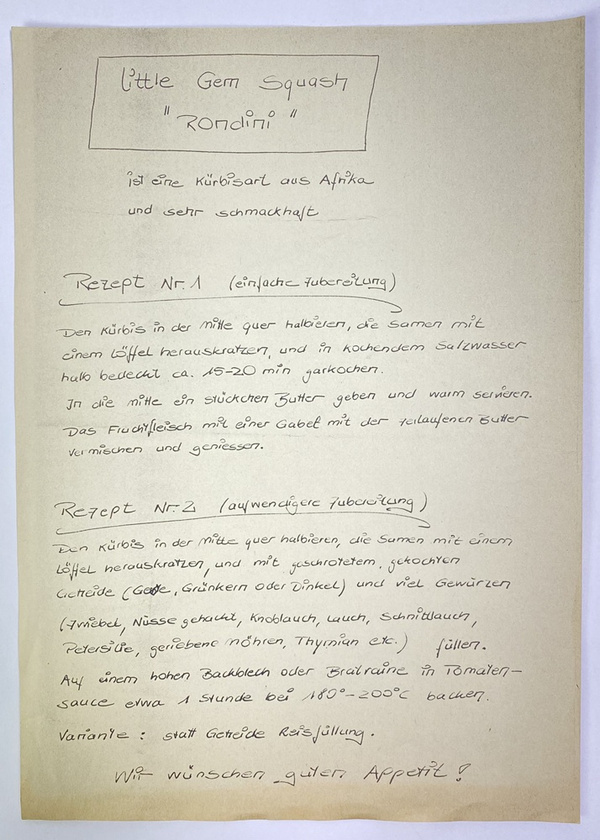 Little Gem Squash
"Rondini"
ist eine Kürbisart aus Afrika
und sehr schmackhaft
Rezept Nr. 1 (einfache Zubereitung)
Den Kürbis in der Mitte quer halbieren, die Samen mit
einem Löffel herauskratzen, und in kochendem Salzwasser
halb bedeckt ca. 15-20 min garkochen.
In die Mitte ein stückchen Butter geben und warm servieren.
Das Fruchtfleisch mit einer Gabel mit der zerlaufenen Butter
vermischen und geniessen.
Rezept Nr. 2 (aufwendigere Zubereitung)
Den Kürbis in der Mitte quer halbieren, die Samen mit einem
Löffel herauskratzen, und mit geschrotetem, gekochten
Getreide (Gerste, Grünkern oder Dinkel) und viel Gewürzen
(Zwiebel, Nüsse gehackt, Knoblauch, Lauch, Schnittlauch,
Petersilie, geriebene Möhren, Thymian etc.) füllen.
Auf einem hohen Backblech oder Bratraine in Tomaten-
sauce etwa 1 Stunde bei 180°-200°C backen.
Variante : statt Getreide Reisfüllung.
Wir wünschen guten Appetit !